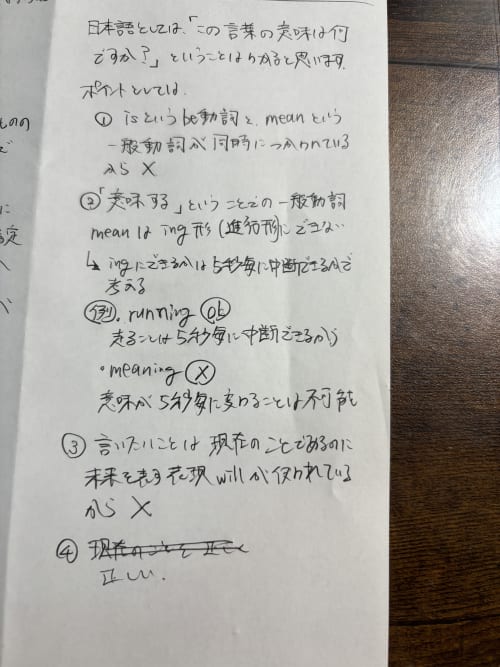 日本語としては、「この言葉の意味は何
ですか?」ということはわかると思います。
ポイントとしては、
① isというbe動詞と、meanという
一般動詞が同時につかわれている
から×
②「意味する」ということでの一般動詞
meanはing形(進行形)にできない
↳ingにできるかは5秒毎に中断できるかで
考える
例.running ok
走ることは5秒毎に中断できるから
・meaning ×
意味が5秒毎に変わることは不可能
③ 言いたいことは現在のことであるのに
未来を表す表現willが使われている
から ×
④ 現在のことを正しく
正しい.
ものの
で
に
定